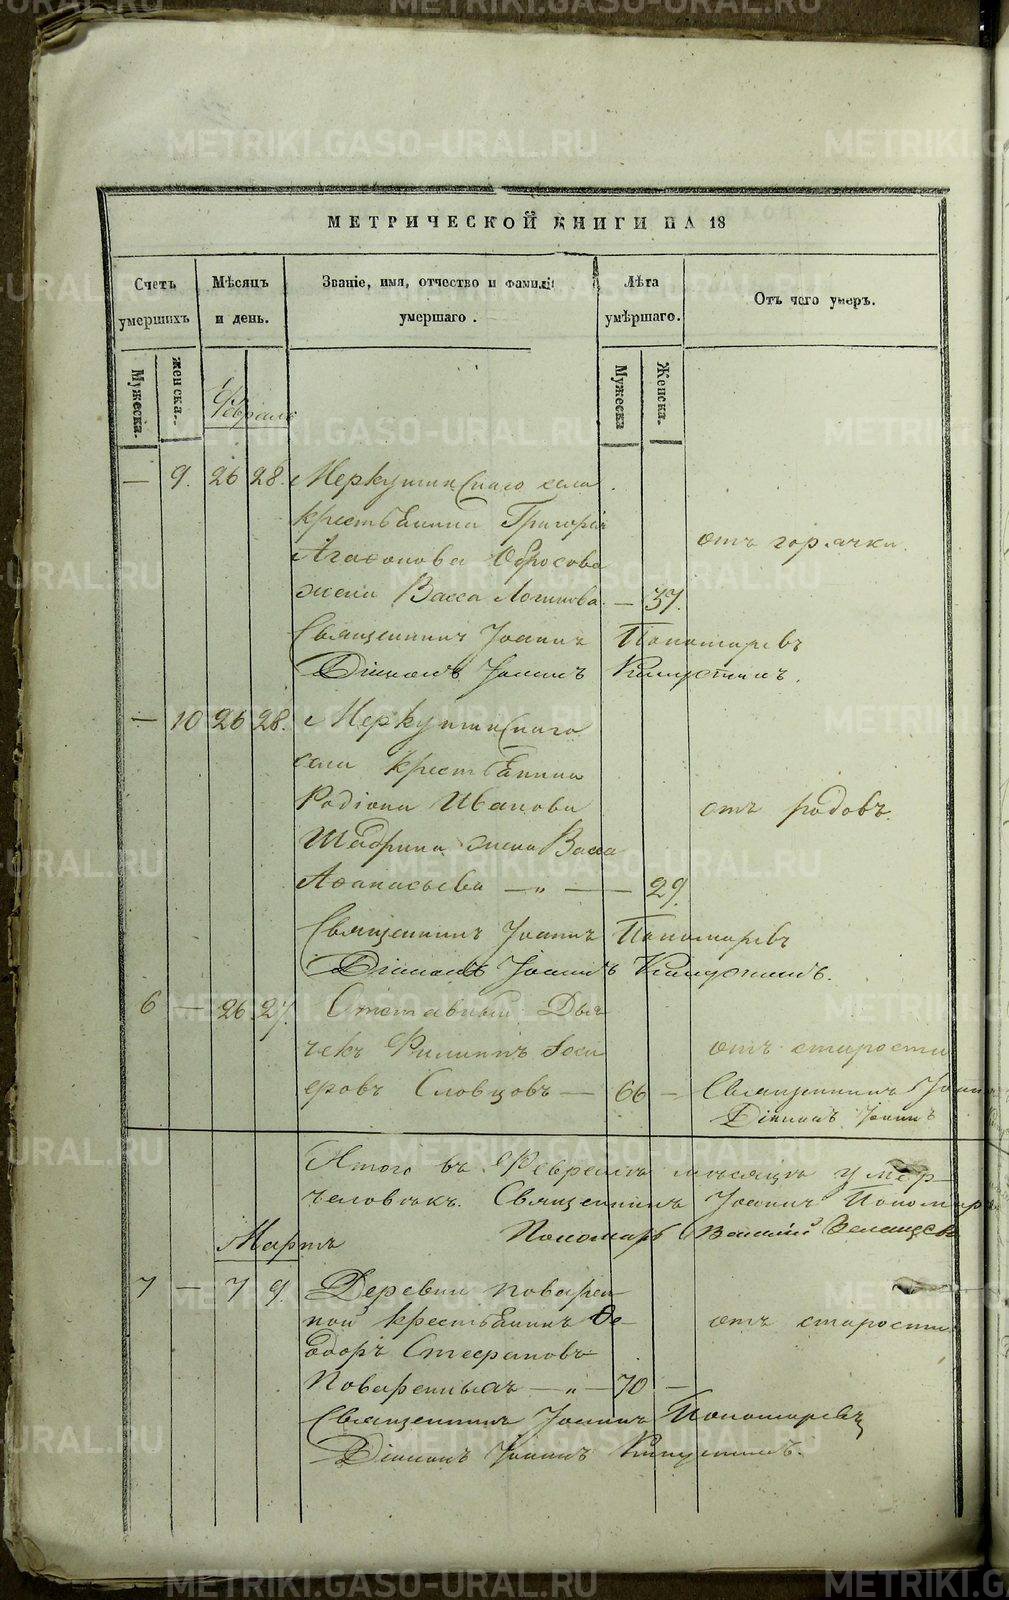 МЕТРИЧЕСКОЙ КНИГИ НА 18
Счетъ умершихъ Мѣсяцъ и день. Званіе, имя, отчество и фамилія умершаго. Лѣта умѣршаго. Отъ чего умеръ.
Мужеска. женска. Мужеска Женска.
Февраль
— 9. 26 28. Меркушинскаго села
крестьянина Григорія
Агафонова Обросова отъ горячки.
жена Васса Логинова — 37.
Священникъ Іоаннъ Пономаревъ
Діаконъ Іоаннъ
— 10 26 28. Меркушинскаго
села крестьянина
Родіона Иванова отъ родовъ.
Шадрина жена Васса
Афанасьева — „ — 29.
Священникъ Іоаннъ Пономаревъ
Діаконъ Іоаннъ
6 — 26 27. Отставный Дья
чекъ Филиппъ Іоси отъ старости
фовъ Словцовъ — 66 — Священникъ Іоан
Діаконъ Іоаннъ
Итого въ Февралѣ мѣсяцѣ умер
человѣкъ. Священникъ Іоаннъ Пономар
Мартъ Пономарь Василій
7 — 7 9 Деревни Поварен
ной крестьянинъ Ѳе отъ старости
доръ Стефановъ
Поваренныхъ — „ — 70 —
Священникъ Іоаннъ Пономаревъ
Діаконъ Іоаннъ
METRIKI.GASO-URAL.RU